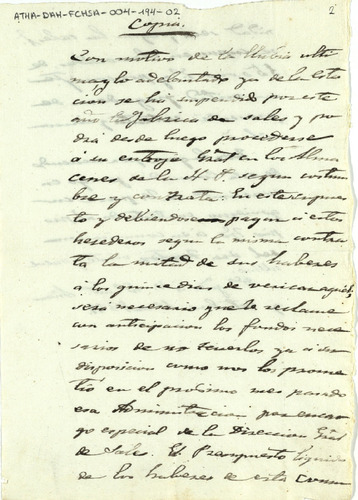 ATHA-DAH-FCHSA-004-194-02
2
Copia.
Con motivo de la lluvia ulti
ma y lo adelantado ya de la Esta
cion se ha suspendido por este
año la fabrica de sales y po
drá desde luego procederse
á su entroje Gral en los Alma
cenes de la H. P. segun costum
bre y contrata: En este supues
to y debiendose pagar á estos
herederos segun la misma contra
ta la mitad de sus haberes
á los quince dias de verificarse
será necesario que se reclame
con anticipacion los fondos nece
sarios de no tenerlos ya á su
disposicion como nos los prome
tió en el próximo mes pasado
esa Administracion por encar
go especial de la Direccion Gral
de Sales. El Presupuesto liquido
de los haberes de esta Comu